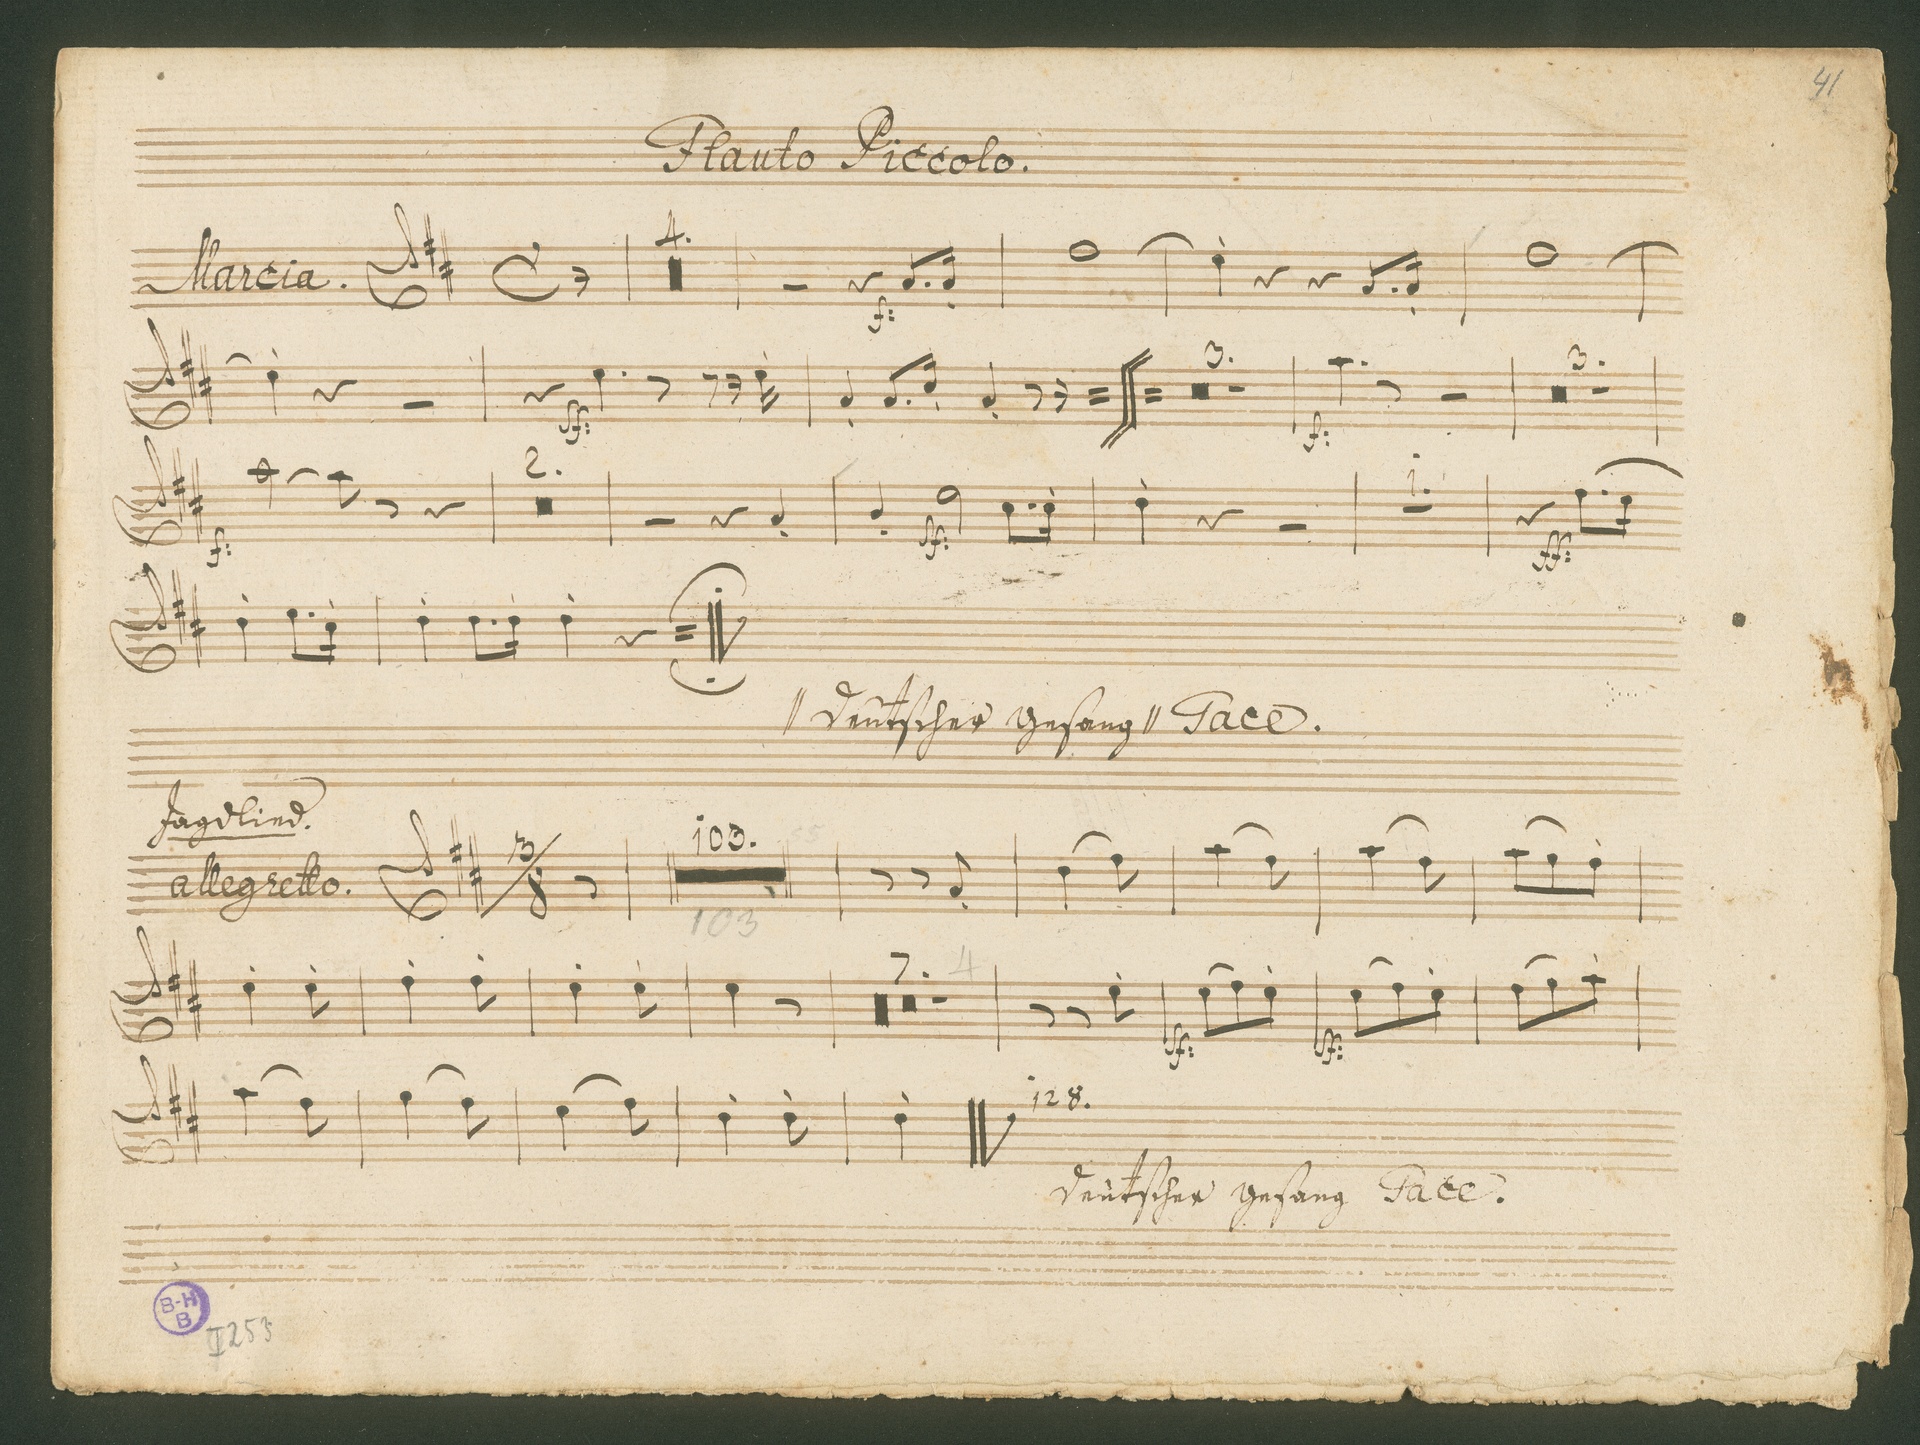 41
Flauto Piccolo.
Marcia. 4.
f:
3. 3.
sf: f:
2. 1.
f: sf: ff:
// deutscher gesang // Tace.
Jagdlied.
allegretto. 3/8 103.
103
7. 4
sf: sf:
128.
deutscher gesang Tace.
B-H
B
II 253